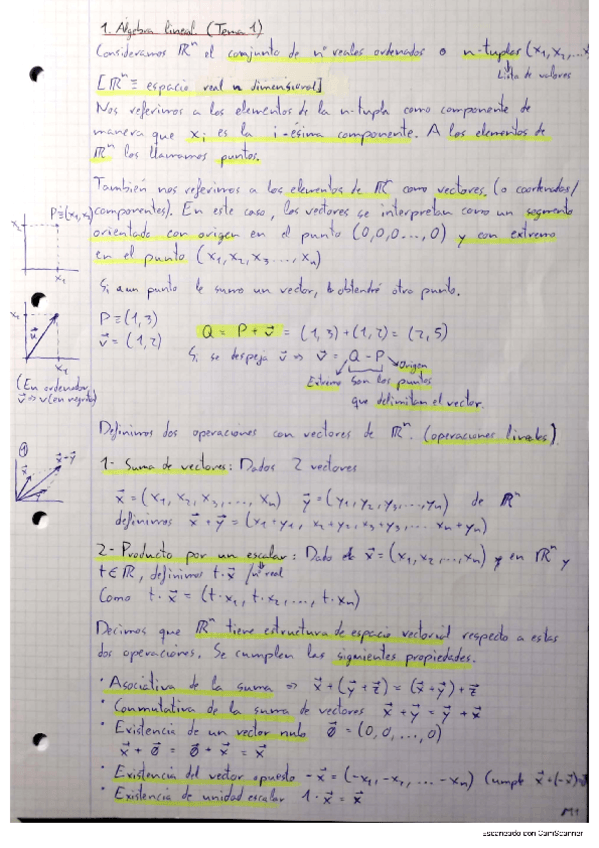 1. Algebra lineal. (Tema 1)
Consideramos ℝⁿ el conjunto de nº reales ordenados o n-tuplas (x₁, x₂, ...x
Lista de valores
[ℝⁿ ≡ espacio real n dimensional]
Nos referimos a los elementos de la n-tupla como componente de
manera que xᵢ es la i-ésima componente. A los elementos de
ℝⁿ los llamamos puntos.
También nos referimos a los elementos de ℝⁿ como vectores. (o coordenadas/
P≡(x₁, x₂) componentes). En este caso, los vectores se interpretan como un segmento
x₂ orientado con origen en el punto (0,0,0...,0) y con extremo
en el punto (x₁, x₂, x₃ ..., xₙ)
x₁
Si a un punto le sumo un vector, obtendré otro punto.
x₂ P≡(1,3)
v⃗ = (1,2) Q = P + v⃗ = (1,3)+(1,2)= (2,5)
u⃗
Si se despeja v⃗ ⇒ v⃗ = Q - P
x₁
Origen
(En ordenador, Extremo Son los puntos
v⃗ ⇒ v (en negrita) que delimitan el vector.
Definimos dos operaciones con vectores de ℝⁿ. (operaciones lineales).
①
x⃗+y⃗
x⃗
1- Suma de vectores: Dados 2 vectores
x⃗ = (x₁, x₂, x₃, ..., xₙ) y⃗ = (y₁, y₂, y₃, ..., yₙ) de ℝⁿ
definimos x⃗ + y⃗ = (x₁+y₁, x₂+y₂, x₃+y₃, ... xₙ+yₙ)
2- Producto por un escalar: Dado x⃗ = (x₁, x₂, ..., xₙ) en ℝⁿ y
t ∈ ℝ, definimos t·x⃗ / nº real
Como t·x⃗ = (t·x₁, t·x₂, ..., t·xₙ)
Decimos que ℝⁿ tiene estructura de espacio vectorial respecto a estas
dos operaciones. Se cumplen las siguientes propiedades.
· Asociativa de la suma ⇒ x⃗ + (y⃗ + z⃗) = (x⃗ + y⃗) + z⃗
· Conmutativa de la suma de vectores x⃗ + y⃗ = y⃗ + x⃗
· Existencia de un vector nulo 0⃗ = (0,0,...,0)
x⃗ + 0⃗ = 0⃗ + x⃗ = x⃗
· Existencia del vector opuesto -x⃗ = (-x₁, -x₂, ... -xₙ) (cumple x⃗+(-x⃗)=0⃗
· Existencia de unidad escalar 1·x⃗ = x⃗
M1
Escaneado con CamScanner